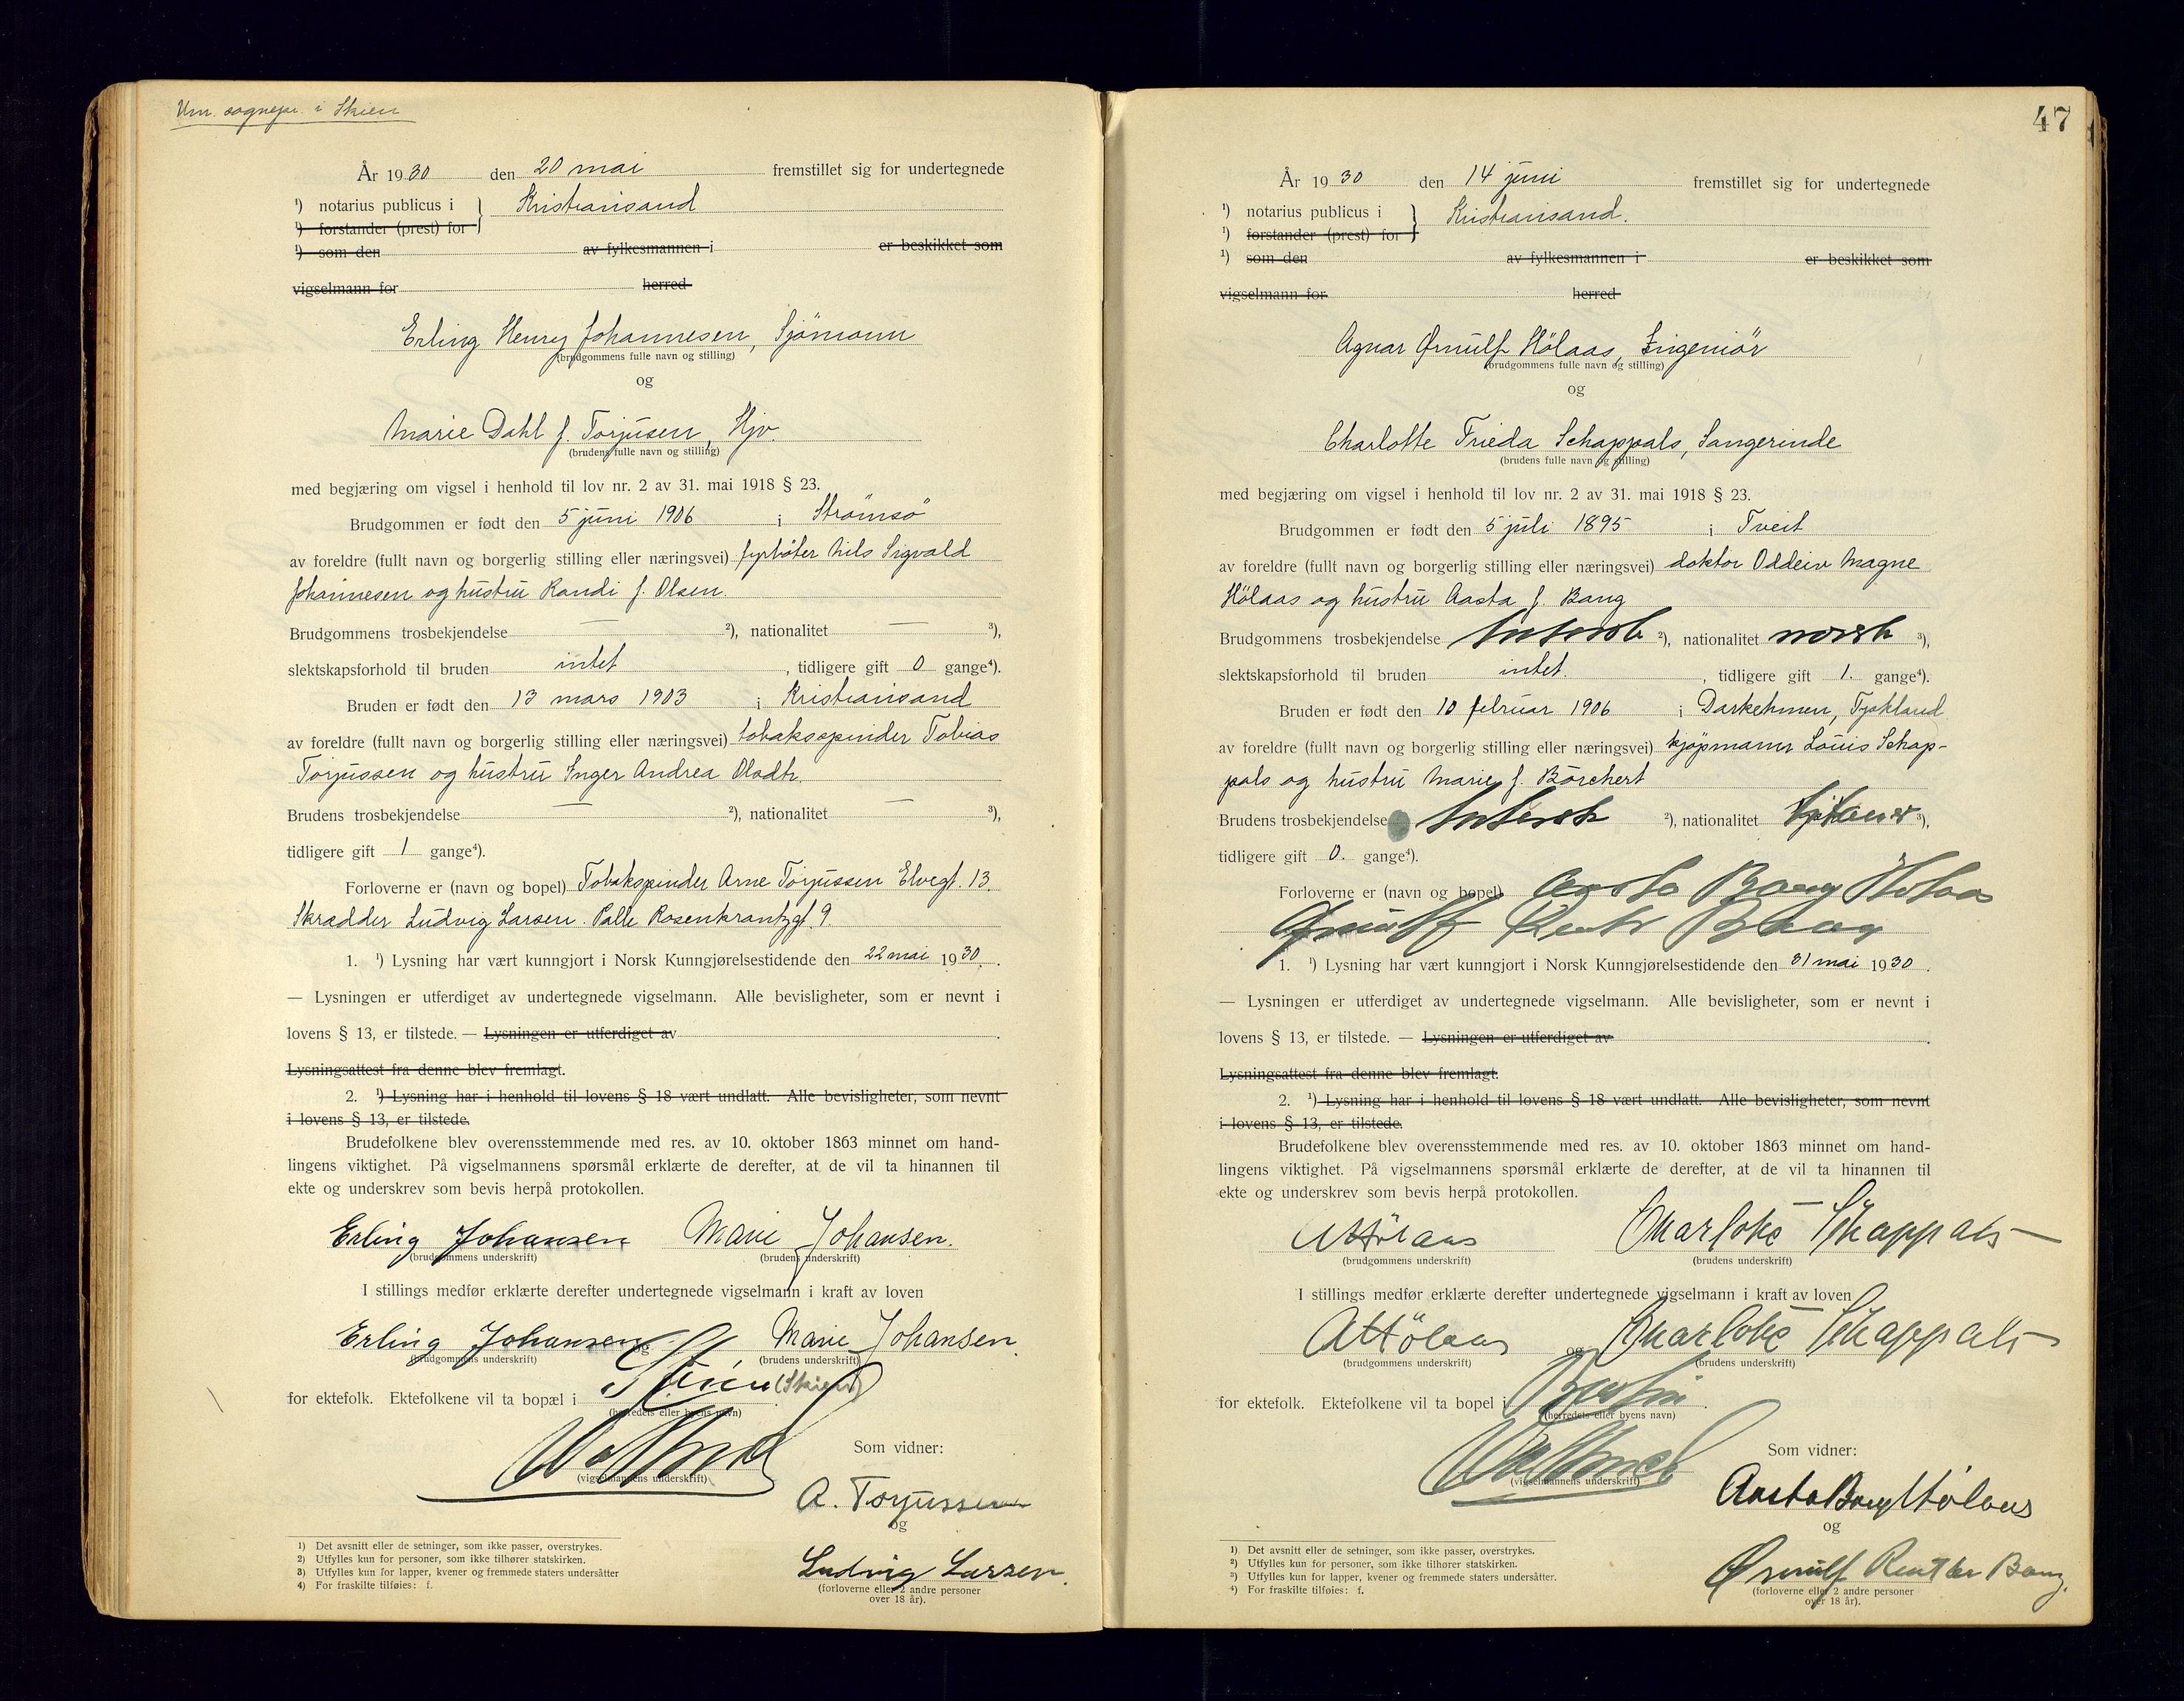 Um. sognepr. i Skien
År 1930 den 20 mai fremstillet sig for undertegnede
¹) notarius publicus i } Kristiansand
¹) forstander (prest) for
¹) som den av fylkesmannen i er beskikket som
vigselmann for herred
Erling Henry Johannesen, Sjömann
(brudgommens fulle navn og stilling)
og
Marie Dahl f. Torjusen, Hjv.
(brudens fulle navn og stilling)
med begjæring om vigsel i henhold til lov nr. 2 av 31. mai 1918 § 23.
Brudgommen er født den 5 juni 1906 i Strömsö
av foreldre (fullt navn og borgerlig stilling eller næringsvei) fyrbøter Nils Sigvald
Johannesen og hustru Randi f. Olsen.
Brudgommens trosbekjendelse — ²), nationalitet — ³),
slektskapsforhold til bruden intet, tidligere gift 0 gange⁴).
Bruden er født den 13 mars 1903 i Kristiansand
av foreldre (fullt navn og borgerlig stilling eller næringsvei) tobaksspinder Tobias
Torjussen og hustru Inger Andrea
Brudens trosbekjendelse — ²), nationalitet — ³),
tidligere gift 1 gange⁴).
Forloverne er (navn og bopel) Tobakspinder Arne Torjussen Elvegt. 13.
Skrædder Ludvig Larsen. Palle Rosenkrantzgt. 9.
1. ¹) Lysning har vært kunngjort i Norsk Kunngjørelsestidende den 22 mai 1930.
— Lysningen er utferdiget av undertegnede vigselmann. Alle bevisligheter, som er nevnt i
lovens § 13, er tilstede. — Lysningen er utferdiget av .
Lysningsattest fra denne blev fremlagt.
2. ¹) Lysning har i henhold til lovens § 18 vært undlatt. Alle bevisligheter, som nevnt
i lovens § 13, er tilstede.
Brudefolkene blev overensstemmende med res. av 10. oktober 1863 minnet om hand-
lingens viktighet. På vigselmannens spørsmål erklærte de derefter, at de vil ta hinannen til
ekte og underskrev som bevis herpå protokollen.
Erling Johansen Marie Johansen.
(brudgommens underskrift) (brudens underskrift)
I stillings medfør erklærte derefter undertegnede vigselmann i kraft av loven
Erling Johansen og Marie Johansen.
(brudgommens underskrift) (brudens underskrift)
for ektefolk. Ektefolkene vil ta bopæl i Skien (Skien)
(herredets eller byens navn)
Som vidner:
(vigselmannens underskrift)
A. Torjussen
og
Ludvig Larsen.
(forloverne eller 2 andre personer
over 18 år).
1) Det avsnitt eller de setninger, som ikke passer, overstrykes.
2) Utfylles kun for personer, som ikke tilhører statskirken.
3) Utfylles kun for lapper, kvener og fremmede staters undersåtter
4) For fraskilte tilføies: f.
47
År 1930 den 14 juni fremstillet sig for undertegnede
¹) notarius publicus i } Kristiansand.
¹) forstander (prest) for
¹) som den av fylkesmannen i er beskikket som
vigselmann for herred
Agnar Ørnulf Hölaas, Ingeniör
(brudgommens fulle navn og stilling)
og
Charlotte Frieda Schappals, Sangerinde
(brudens fulle navn og stilling)
med begjæring om vigsel i henhold til lov nr. 2 av 31. mai 1918 § 23.
Brudgommen er født den 5 juli 1895 i Tveit
av foreldre (fullt navn og borgerlig stilling eller næringsvei) doktor Oddeiv Magne
Hölaas og hustru Aasta f. Bang
Brudgommens trosbekjendelse luthersk ²), nationalitet norsk ³),
slektskapsforhold til bruden intet., tidligere gift 1. gange⁴).
Bruden er født den 10 februar 1906 i Darkehmen, Tyskland
av foreldre (fullt navn og borgerlig stilling eller næringsvei) kjøpmann Louis Schap-
pals og hustru Marie f. Borchert
Brudens trosbekjendelse luthersk ²), nationalitet ³),
tidligere gift 0. gange⁴).
Forloverne er (navn og bopel) Aasta Bang Hölaas
Ørnulf Bang
1. ¹) Lysning har vært kunngjort i Norsk Kunngjørelsestidende den 31 mai 1930.
— Lysningen er utferdiget av undertegnede vigselmann. Alle bevisligheter, som er nevnt i
lovens § 13, er tilstede. — Lysningen er utferdiget av .
Lysningsattest fra denne blev fremlagt.
2. ¹) Lysning har i henhold til lovens § 18 vært undlatt. Alle bevisligheter, som nevnt
i lovens § 13, er tilstede.
Brudefolkene blev overensstemmende med res. av 10. oktober 1863 minnet om hand-
lingens viktighet. På vigselmannens spørsmål erklærte de derefter, at de vil ta hinannen til
ekte og underskrev som bevis herpå protokollen.
A Hölaas Charlotte Schappals
(brudgommens underskrift) (brudens underskrift)
I stillings medfør erklærte derefter undertegnede vigselmann i kraft av loven
A Hölaas og Charlotte Schappals
(brudgommens underskrift) (brudens underskrift)
for ektefolk. Ektefolkene vil ta bopel i Berlin.
(herredets eller byens navn)
Som vidner:
(vigselmannens underskrift)
Aasta Bang Hölaas
og
Ørnulf Bang.
(forloverne eller 2 andre personer
over 18 år).
¹) Det avsnitt eller de setninger, som ikke passer, overstrykes.
²) Utfylles kun for personer, som ikke tilhører statskirken.
³) Utfylles kun for lapper, kvener og fremmede staters undersåtter.
⁴) For fraskilte tilføies: f.